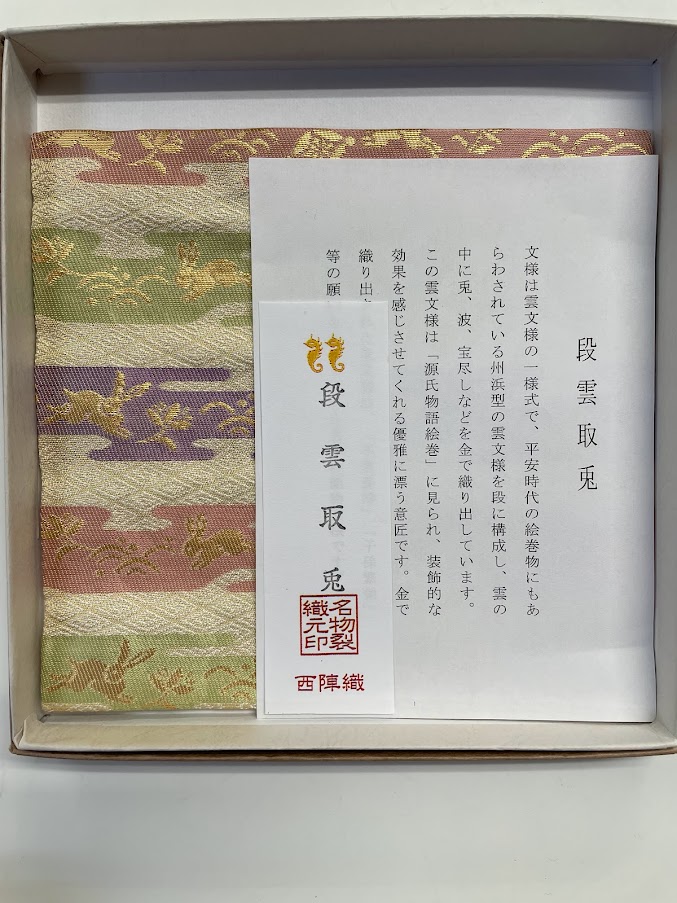 段雲取兎
文様は雲文様の一様式で、平安時代の絵巻物にもあ
らわされている州浜型の雲文様を段に構成し、雲の
中に兎、波、宝尽しなどを金で織り出しています。
この雲文様は「源氏物語絵巻」に見られ、装飾的な
効果を感じさせてくれる優雅に漂う意匠です。金で
織り出
等の願
段雲取兎
名物裂
織元印
西陣織